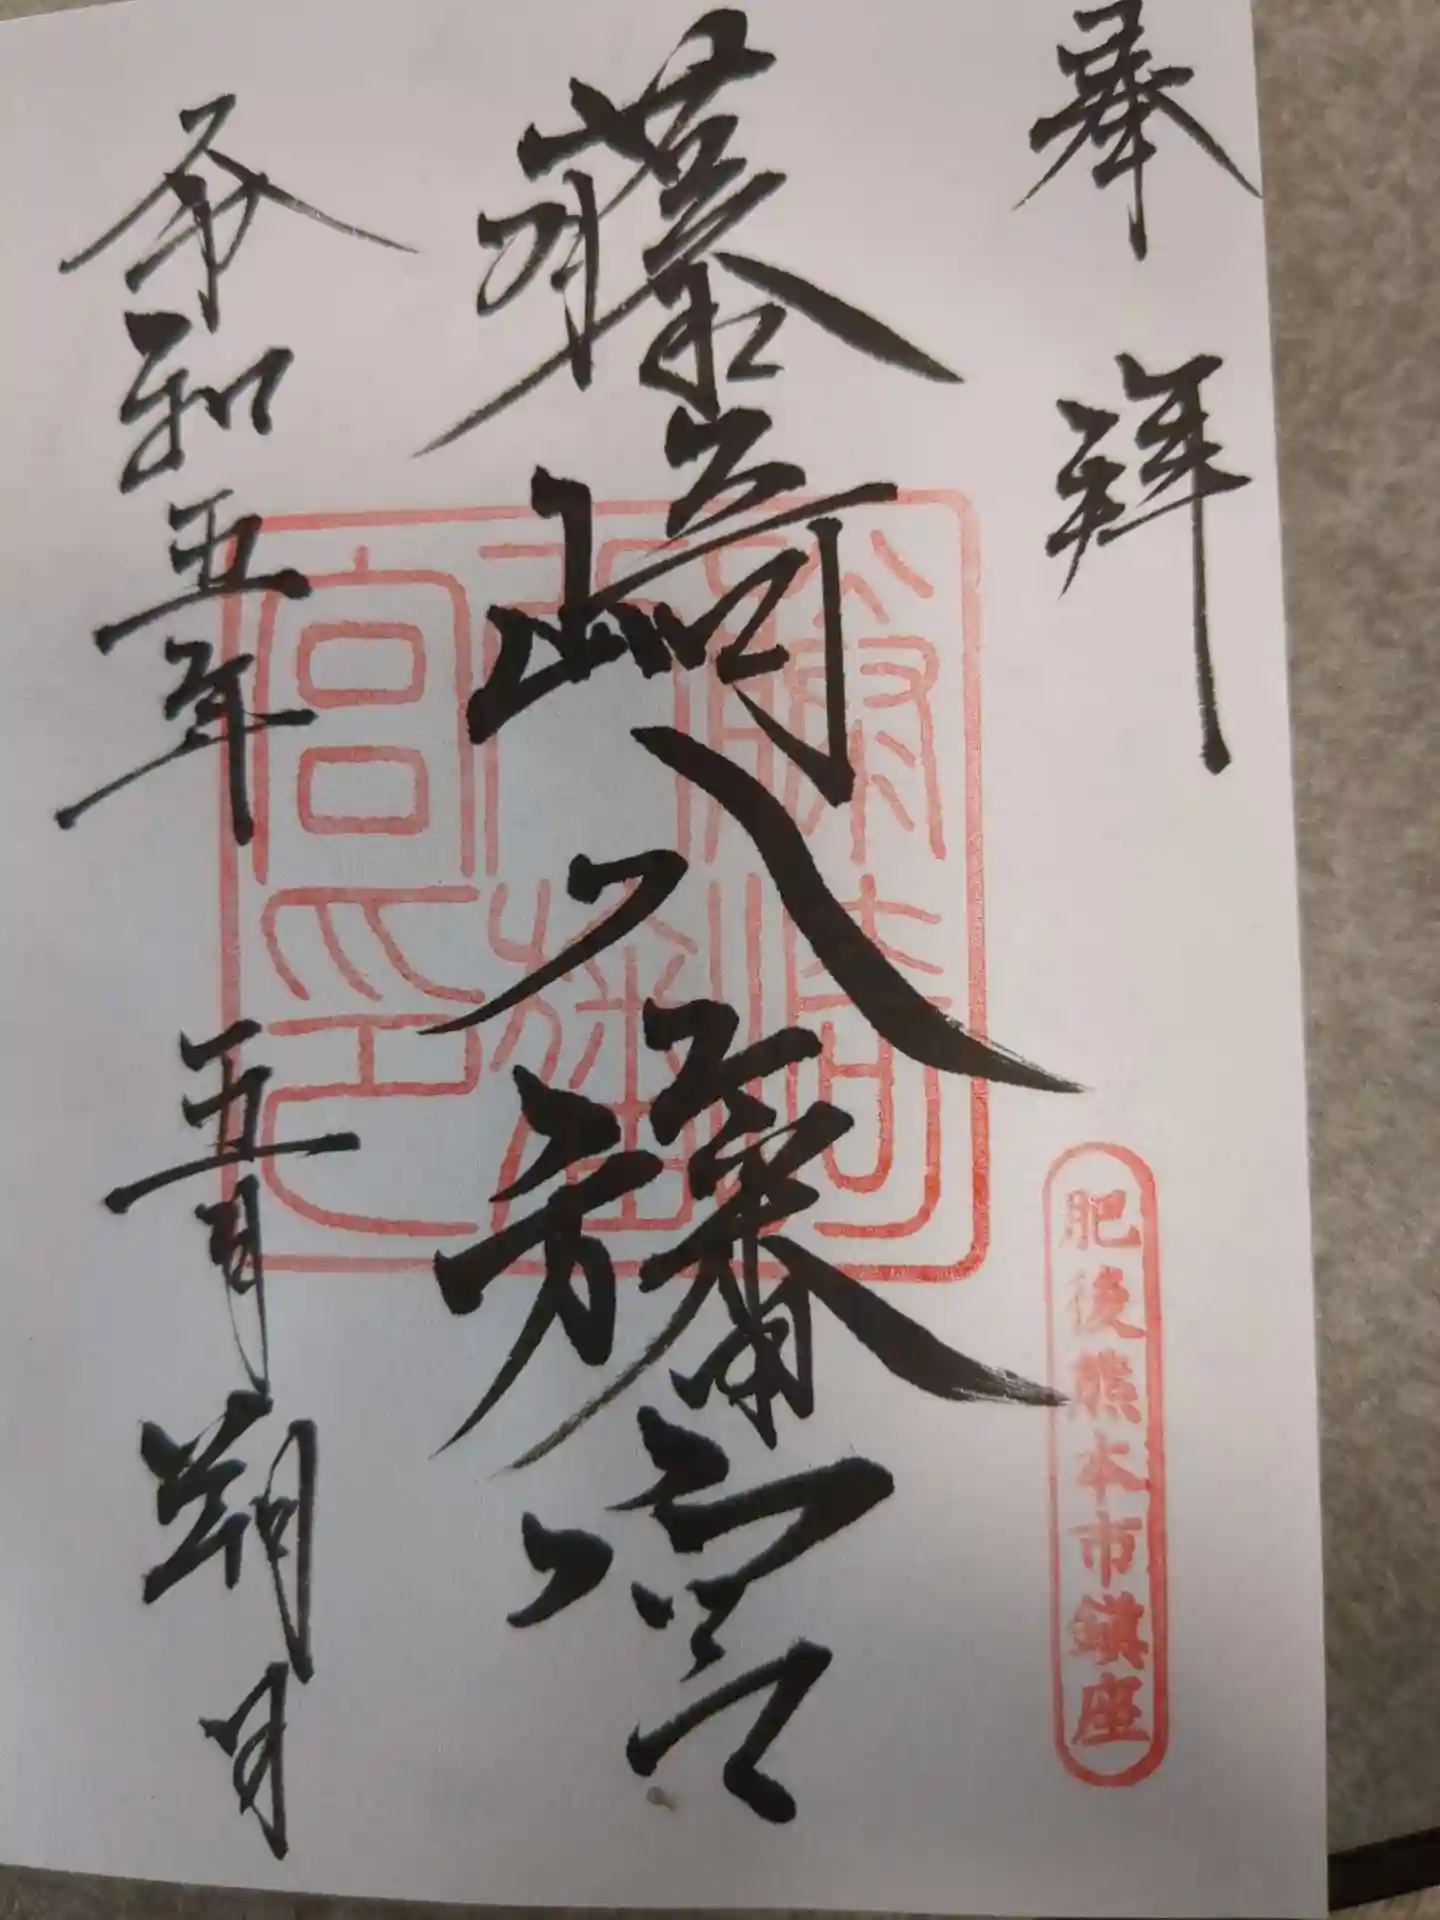 奉拝
肥後熊本市鎮座
藤崎八旛宮
藤崎八旛宮印
令和五年五月朔日